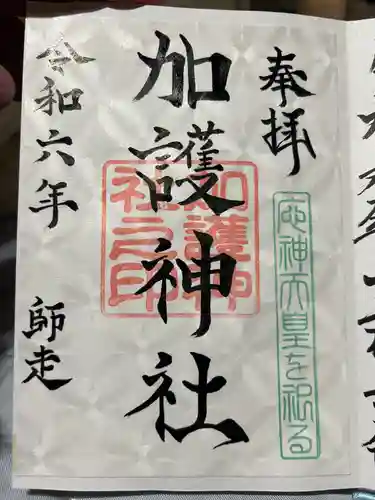 奉拝
応神天皇を祀る
加護神社
加護神社之印
令和六年
師走